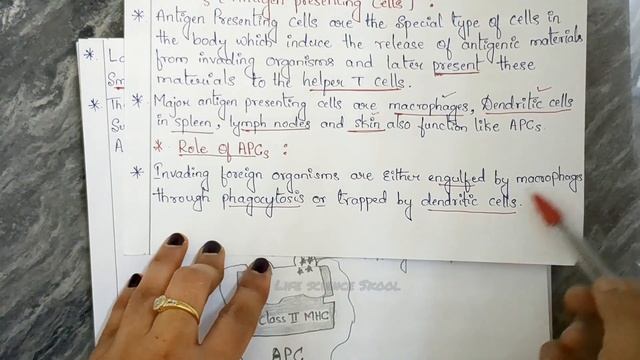 [Antigen presenting Cells] :
* Antigen Presenting cells are the special type of cells in
the body which induce the release of antigenic materials
from invading organisms and later present these
materials to the helper T cells.
* Major antigen presenting cells are macrophages, Dendritic cells
in spleen, lymph nodes and skin also function like APCs.
* Role of APCs :
* Invading foreign organisms are either engulfed by macrophages
through phagocytosis or trapped by dendritic cells.
* Lo
Sm
* Th
Su
A
LIFE SCIENCE SKOOL
Class II MHC
APC